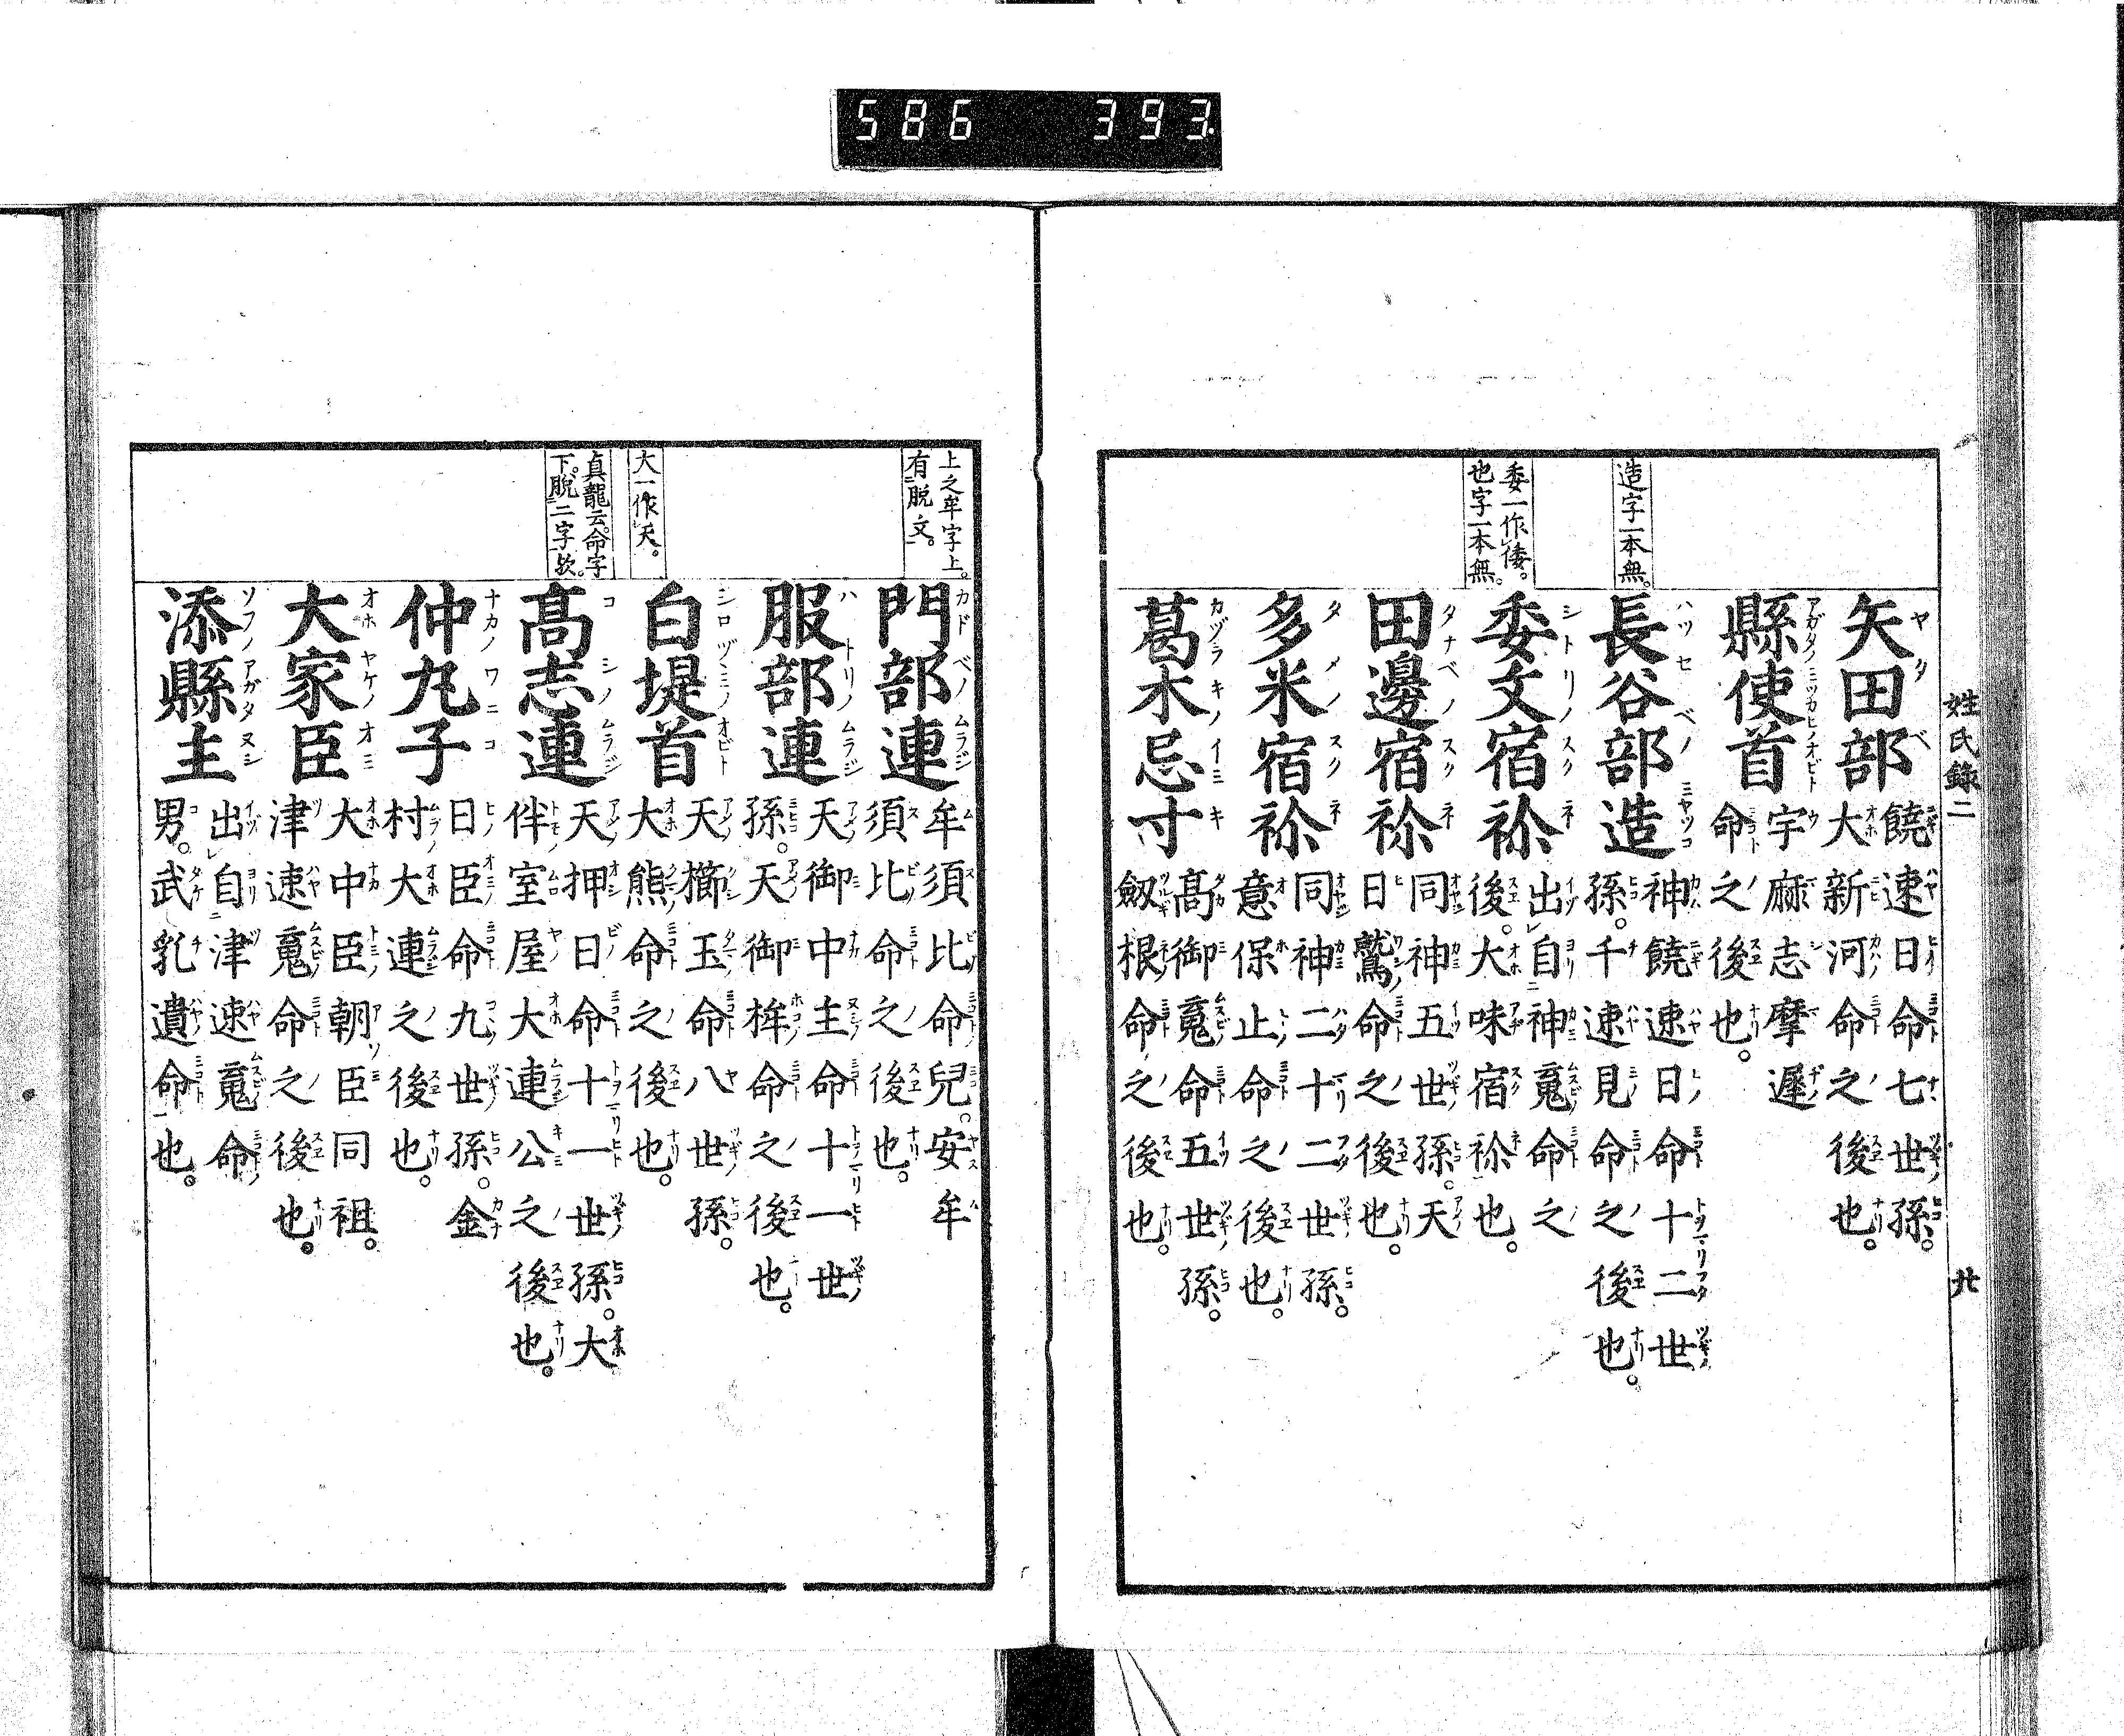 586 393
姓氏錄二
廿
造字一本無。
委一作倭。
也字一本無。
矢田部
饒速日命七世孫。
大新河命之後也。
縣使首
宇麻志摩遲
命之後也。
長谷部造
神饒速日命十二世
孫。千速見命之後也。
委文宿祢
出自神魂命之
後。大味宿祢也。
田邊宿祢
同神五世孫。天
日鷲命之後也。
多米宿祢
同神二十二世孫。
意保止命之後也。
葛木忌寸
髙御魂命五世孫。
劔根命之後也。
上之牟字上。
有脱文。
大一作天。
真龍云。命字
下。脱二字欤。
門部連
牟須比命兒。安牟
須比命之後也。
服部連
天御中主命十一世
孫。天御桙命之後也。
白堤首
天櫛玉命八世孫。
大熊命之後也。
髙志連
天押日命十一世孫。大
伴室屋大連公之後也。
仲丸子
日臣命九世孫。金
村大連之後也。
大家臣
大中臣朝臣同祖。
津速魂命之後也。
添縣主
出自津速魂命
男。武乳遺命也。